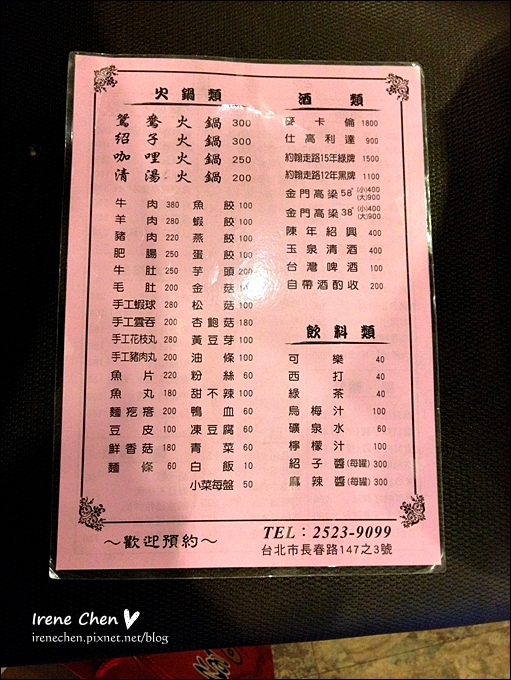 火鍋類
鴛鴦火鍋 300
紹子火鍋 300
咖哩火鍋 250
清湯火鍋 200
牛肉 380 魚餃 100
羊肉 280 蝦餃 100
豬肉 220 燕餃 100
肥腸 250 蛋餃 100
牛肚 250 芋頭 200
毛肚 200 金菇
手工蝦球 280 松菇 100
手工雲吞 200 杏鮑菇 180
手工花枝丸 280 黃豆芽 100
手工豬肉丸 200 油條 100
魚片 220 粉絲 60
魚丸 180 甜不辣 100
麵疙瘩 200 鴨血 60
豆皮 100 凍豆腐 60
鮮香菇 180 青菜 60
麵條 60 白飯 10
小菜每盤 50
酒類
麥卡倫 1800
仕高利達 900
約翰走路15年綠牌 1500
約翰走路12年黑牌 1100
金門高梁58° (小)400 (大)900
金門高梁38° (小)400 (大)900
陳年紹興 400
玉泉清酒 400
台灣啤酒 100
自帶酒酌收 200
飲料類
可樂 40
西打 40
綠茶 40
烏梅汁 100
礦泉水 60
檸檬汁 100
紹子醬(每罐) 300
麻辣醬(每罐) 300
～歡迎預約～
TEL：2523-9099
台北市長春路147之3號
Irene Chen
irenechen.pixnet.net/blog